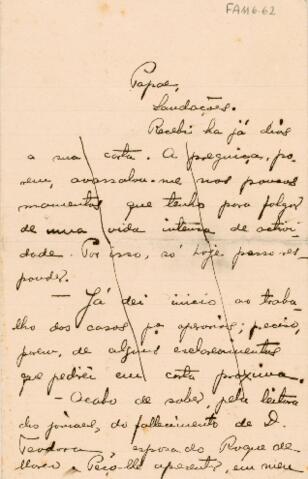 FAM6.62
Papae,
Saudações.
Recebi ha já dias
a sua carta. A preguiça, po-
rem, avassalou-me nos poucos
momentos que tenho para folgar
de uma vida intensa de activi-
dade. Por isso, só hoje posso res-
ponder.
— Já dei inicio ao traba-
lho das casas pª operarios; preciso,
porem, de alguns esclarecimentos
que pedirei em carta proxima.
— Acabo de saber, pela leitura
dos jornaes, do fallecimento de D.
Teodora, esposa do Roque de
Peço-lhe apresentar, em meu